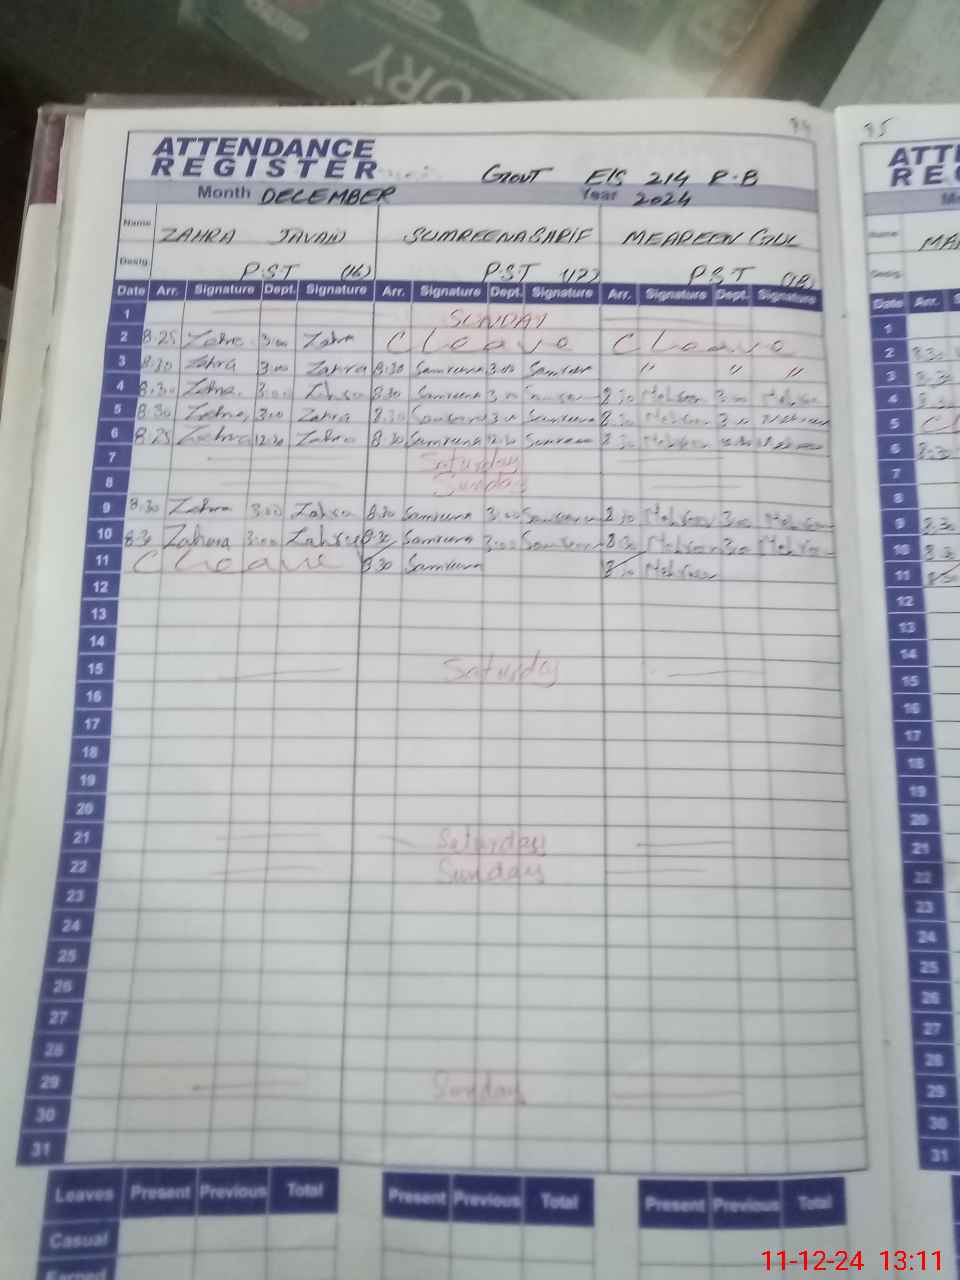 ORY
94
ATTENDANCE
REGISTER
Govt E/S 214 R-B
Month DECEMBER Year 2024
Name ZAHRA JAVAID SUMREENA SARIF MEHREEN GUL
Desig. P.S.T (16) P.S.T (17) P.S.T (18)
Date Arr. Signature Dept. Signature Arr. Signature Dept. Signature Arr. Signature Dept. Signature
1 SUNDAY
2 8.25 Zahra 3.00 Zahra C Leave C Leave
3 8.30 Zahra 3.00 Zahra 8.30 Samreena 3.00 Samreena " " "
4 8.30 Zahra 3.00 Zahra 8.30 Samreena 3.00 Samreena 8.30 Mehreen 3.00 Mehreen
5 8.30 Zahra 3.00 Zahra 8.30 Samreena 3.00 Samreena 8.30 Mehreen 3.00 Mehreen
6 8.25 Zahra 12.30 Zahra 8.30 Samreena 12.30 Samreena 8.30 Mehreen Mehreen
7 Saturday
8 Sunday
9 8.30 Zahra 3.00 Zahra 8.30 Samreena 3.00 Samreena 8.30 Mehreen 3.00 Mehreen
10 8.30 Zahra 3:00 Zahra 8.30 Samreena 3:00 Samreena 8.30 Mehreen 3.00 Mehreen
11 C Leave 8.30 Samreena 8.30 Mehreen
12
13
14
15 Saturday
16
17
18
19
20
21 Saturday
22 Sunday
23
24
25
26
27
28
29 Sunday
30
31
Leaves Present Previous Total Present Previous Total Present Previous Total
Casual
Earned
95
ATT
RE
Name MA
Desig.
Date Arr.
1
2 8.30
3 8.30
4
5
6 8.30
7
8
9 8.30
10 8.30
11 8.30
12
13
14
15
16
17
18
19
20
21
22
23
24
25
26
27
28
29
30
31
11-12-24 13:11